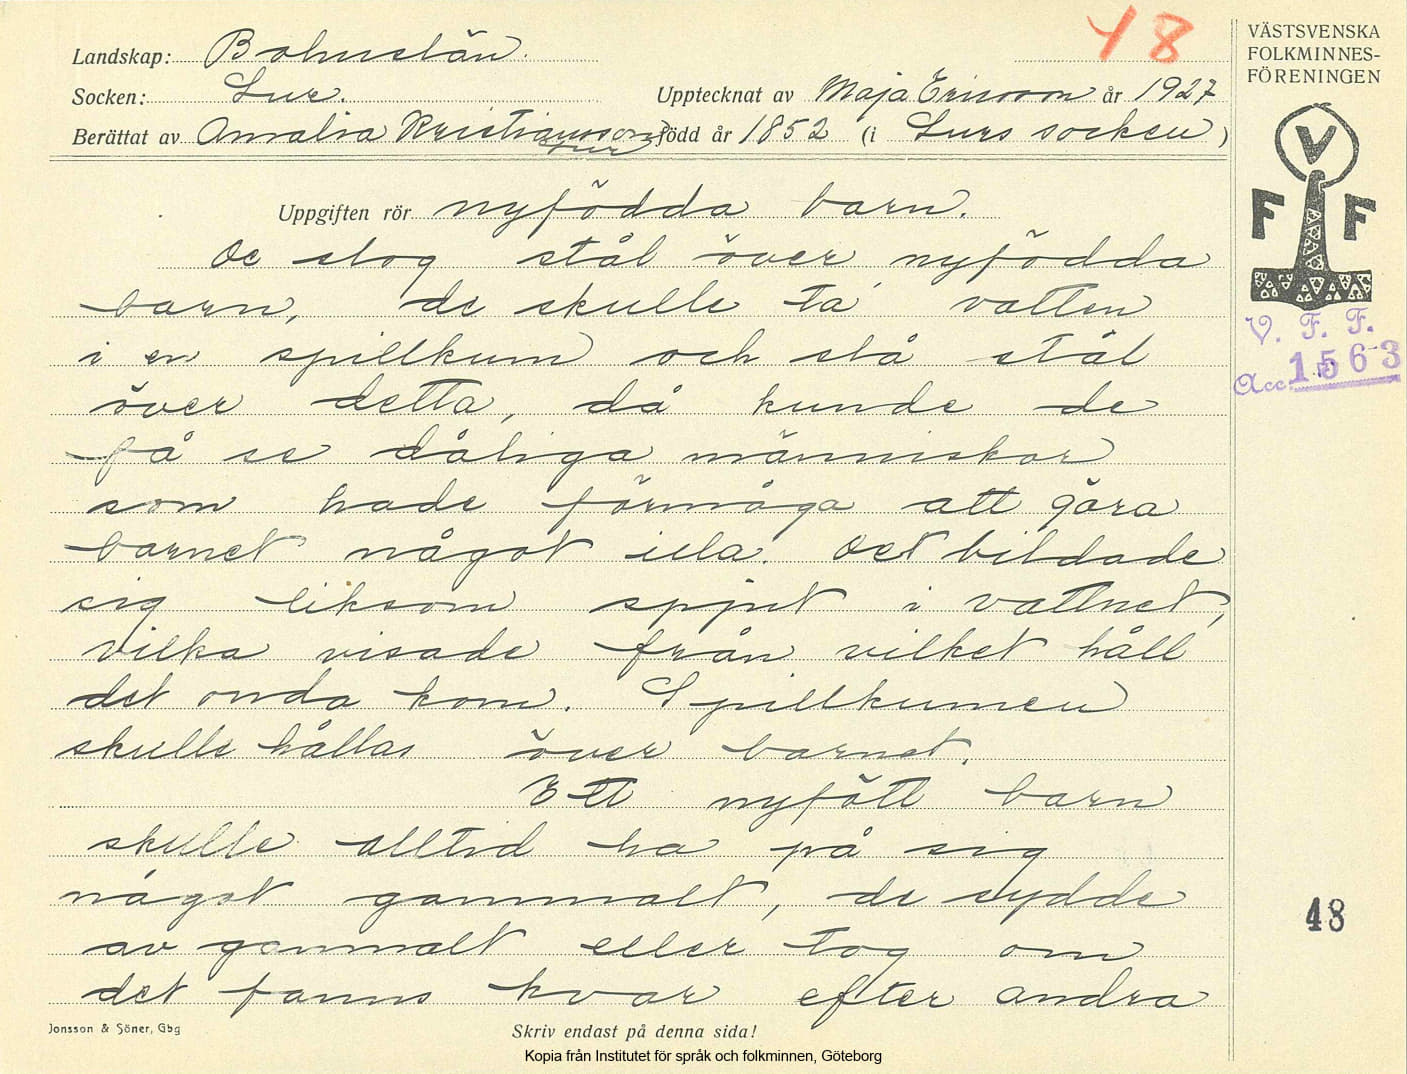 48
Landskap: Bohuslän.
Socken: Lur.
Upptecknat av Maja Ericson år 1927
Berättat av Amalia Kristiansson född år 1852 (i Lurs socken)
Lur
Uppgiften rör nyfödda barn.
De slog stål över nyfödda
barn, de skulle ta vatten
i en spillkum och slå stål
över detta, då kunde de
få se dåliga människor
som hade förmåga att göra
barnet något illa. Det bildade
sig liksom spjut i vattnet,
vilka visade från vilket håll
det onda kom. Spillkumen
skulle hållas över barnet.
Ett nyfött barn
skulle alltid ha på sig
något gammalt, de sydde
av gammalt eller tog om
det fanns kvar efter andra
Jonsson & Söner, Gbg
Skriv endast på denna sida!
Kopia från Institutet för språk och folkminnen, Göteborg
VÄSTSVENSKA
FOLKMINNES-
FÖRENINGEN
V
F F
V. F. F.
Acc. 1563
48